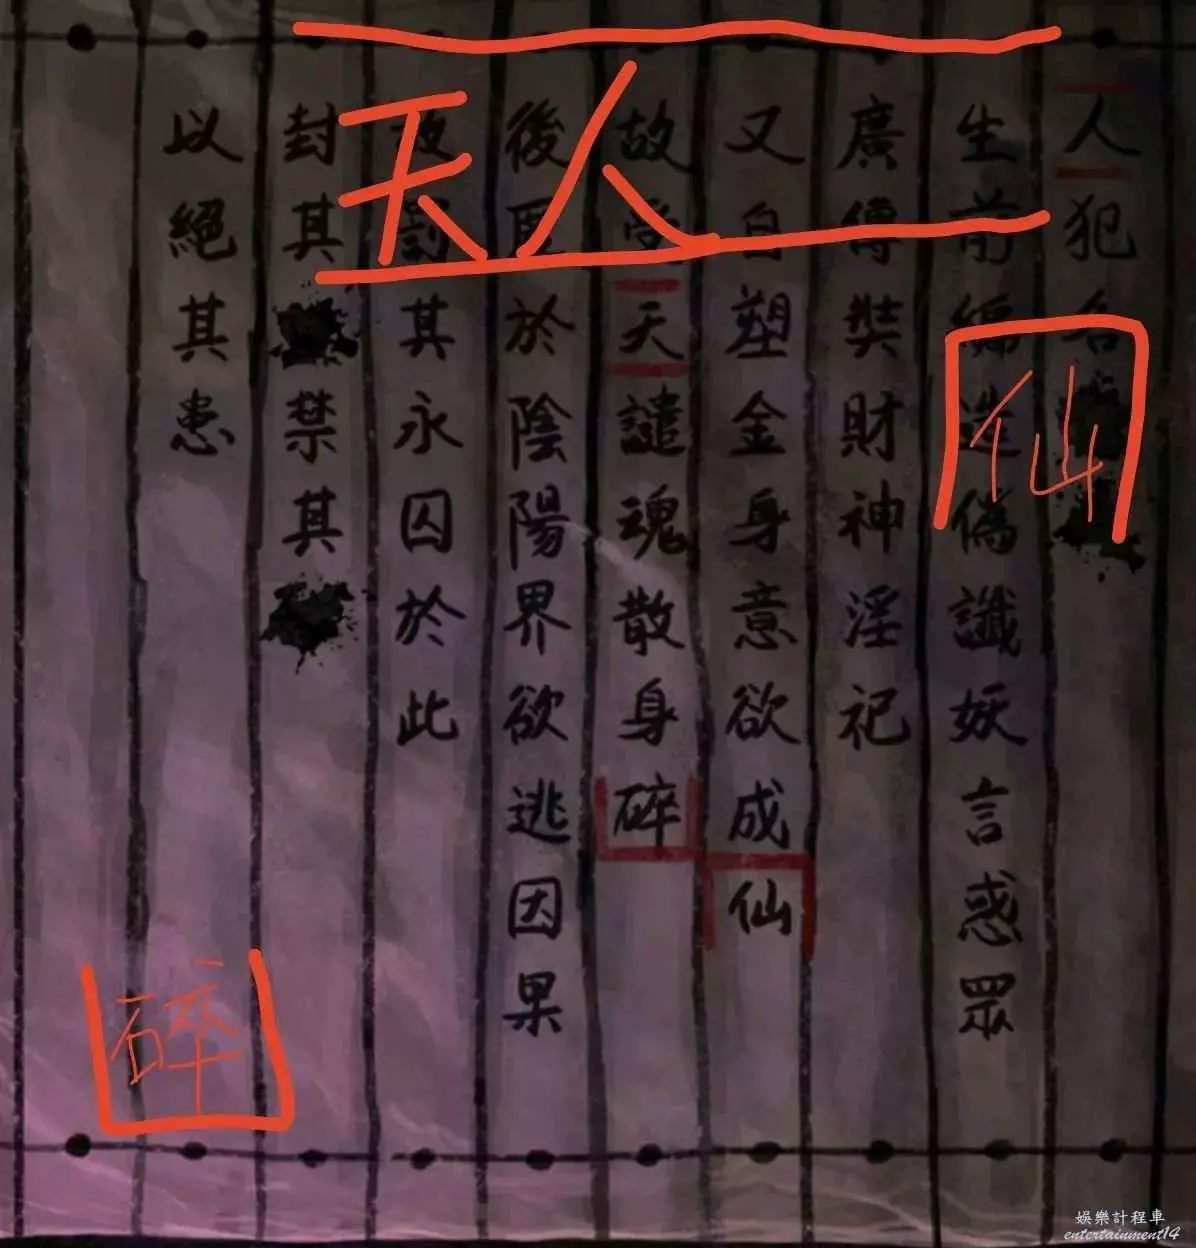 人犯名
生前編造偽讖妖言惑眾
廣傳奘財神淫祀
又自塑金身意欲成仙
故受天譴魂散身碎
後匿於陰陽界欲逃因果
故罰其永囚於此
封其禁其
以絕其患
天人
仙
碎
娛樂計程車
entertainment14